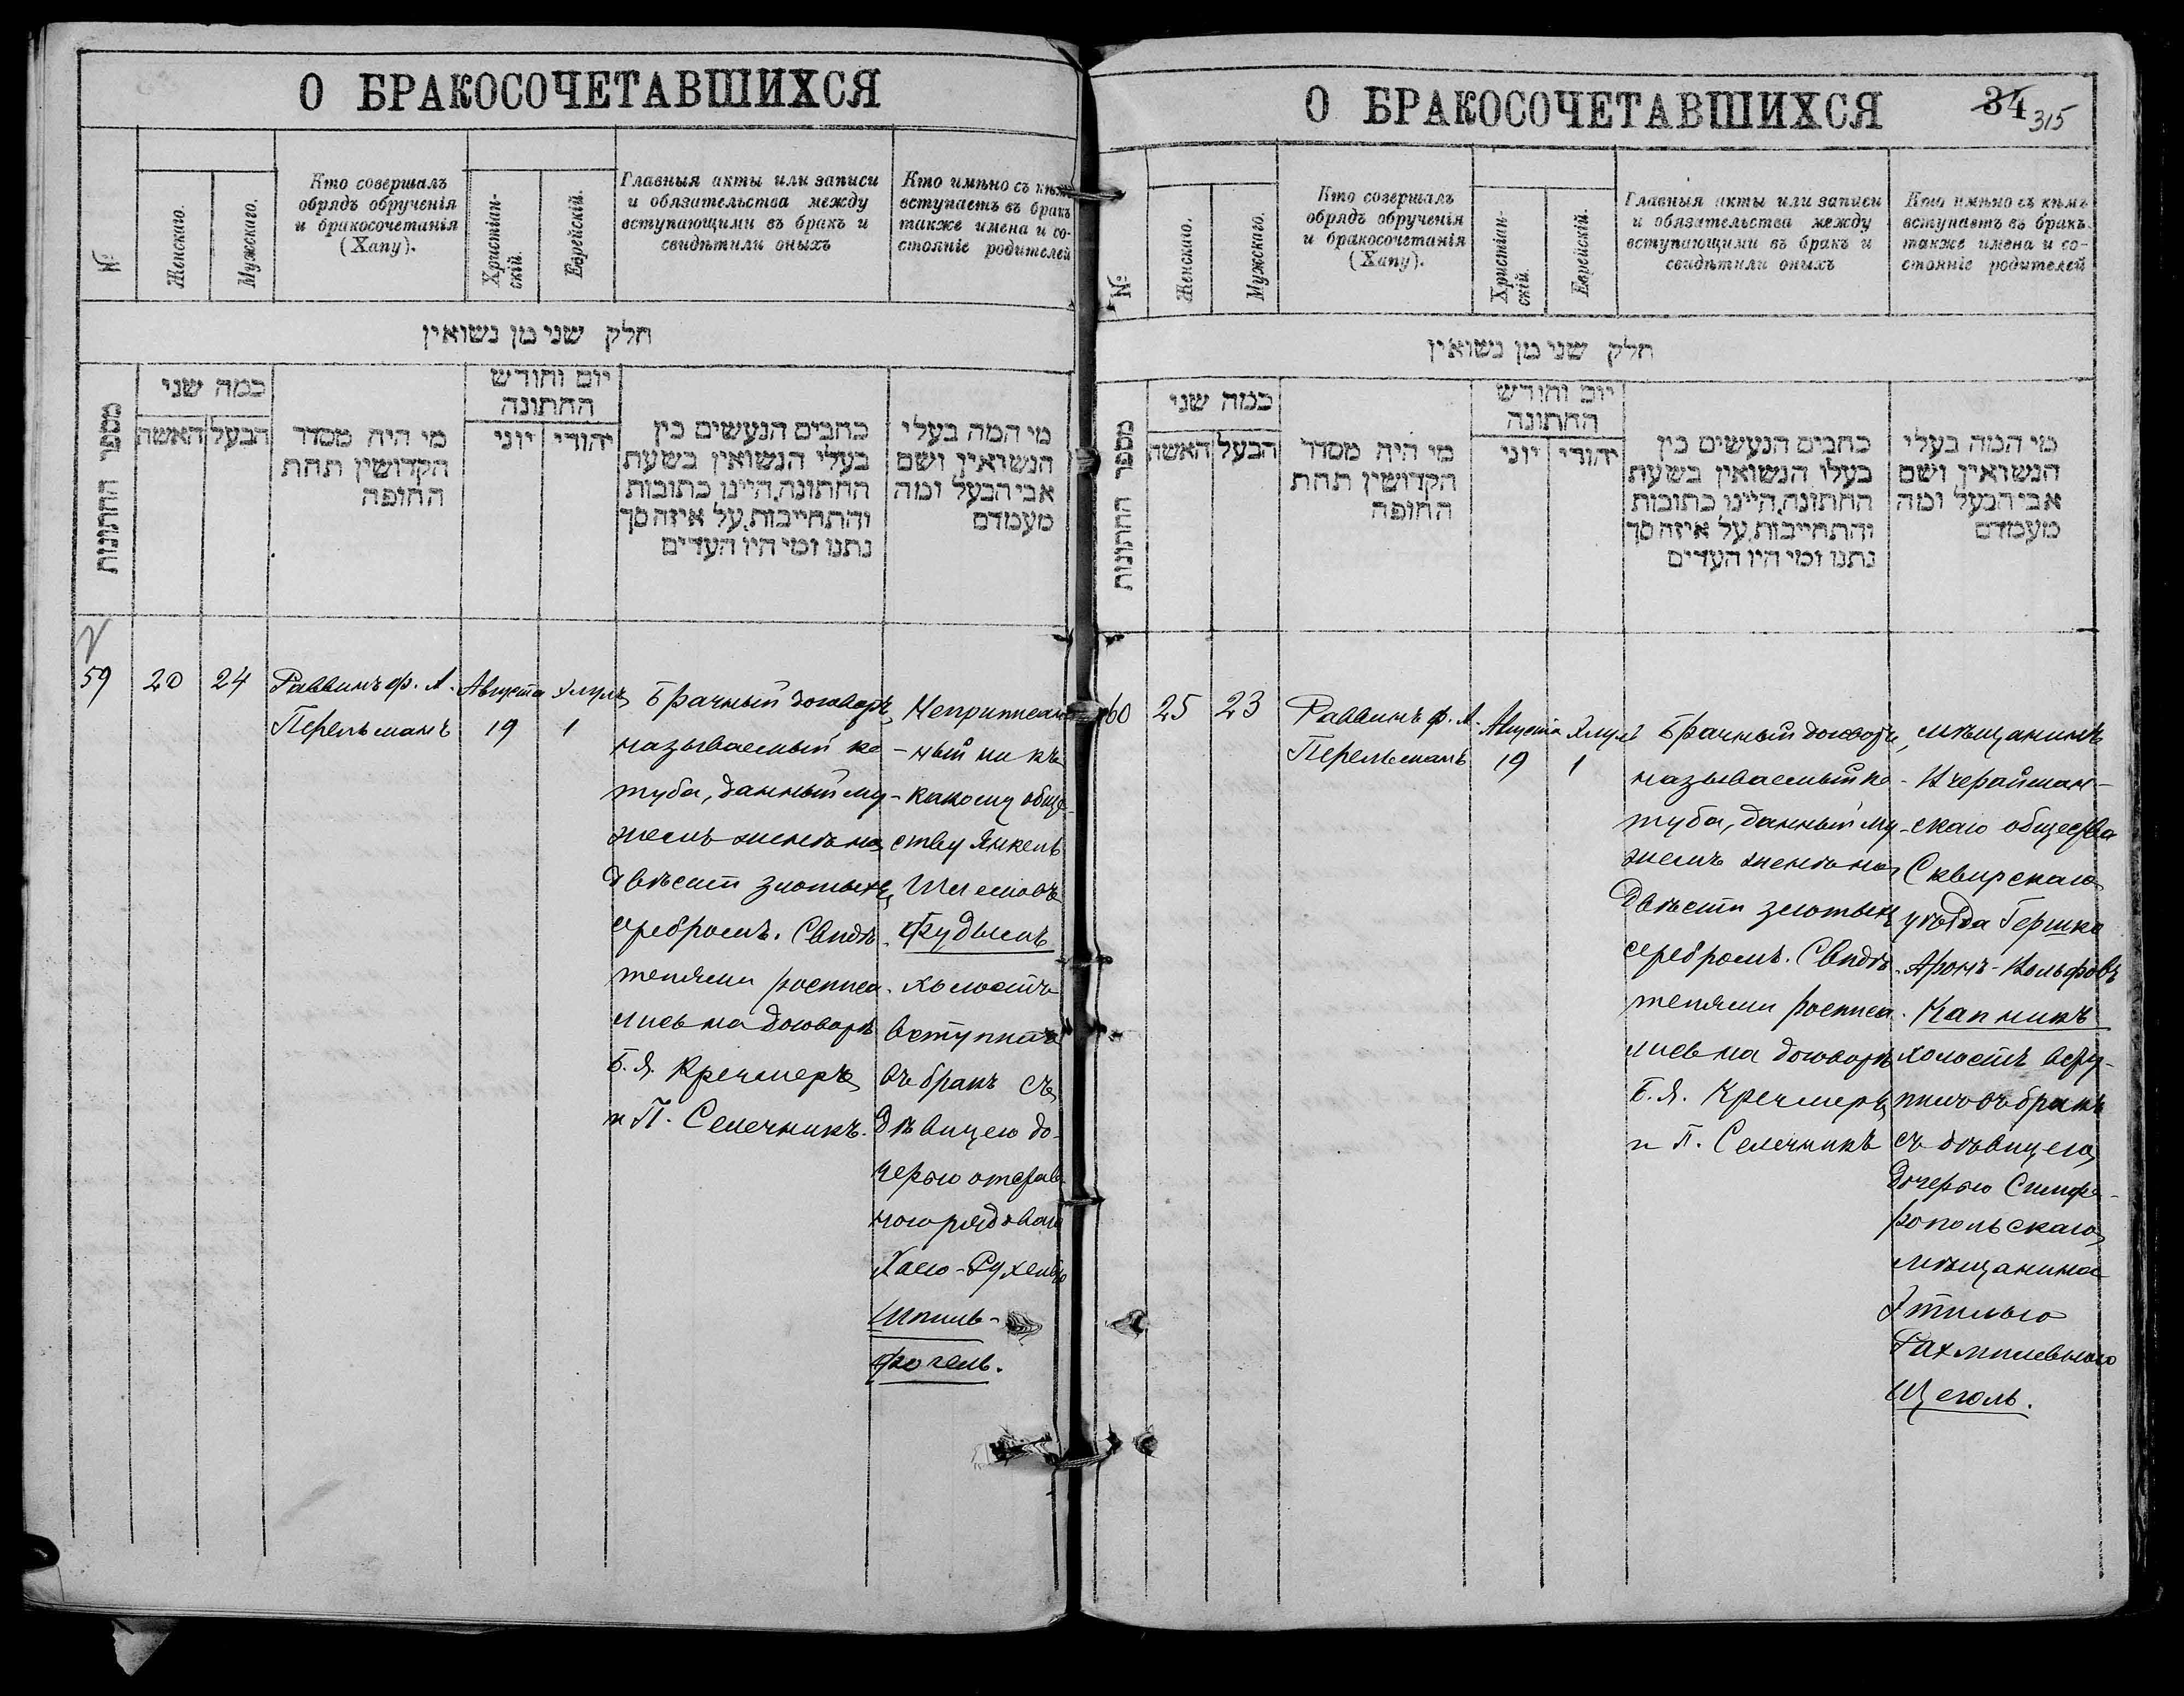 О БРАКОСОЧЕТАВШИХСЯ
№
Женскаго.
Мужскаго.
Кто совершалъ
обрядъ обрученія
и бракосочетанія
(Хапу).
Христіан-
скій.
Еврейскій.
Главныя акты или записи
и обязательства между
вступающими въ бракъ и
свидѣтили оныхъ
Кто имѣно съ кѣмъ
вступаетъ въ бракъ
также имена и со-
стояніе родителей
חלק שני מן נשואין
מספר החתונות
כמה שני
האשה
הבעל
מי היה מסדר
הקדושין תחת
החופה
יום וחודש
החתונה
יוני
יהודי
כתבים הנעשים בין
בעלי הנשואין בשעת
החתונה, היינו כתובות
והתחייבות, על איזה סך
נתנו ומי היו העדים
מי המה בעלי
הנשואין ושם
אבי הבעל ומה
מעמדם
59
20
24
Раввинъ ф. А.
Перельманъ
Августа
19
Элулъ
1
Брачный договоръ,
называемый ке-
туба, данный му-
жемъ женѣ на
двѣсти злотыхъ
серебромъ. Свидѣ-
телями росписа-
лись на договорѣ
Б. Я. Кречмеръ
и П. Селечникъ.
Неприписан-
ный ни къ
какому обще-
ству Янкель
Шлемовъ
Фудымъ
холостъ
вступилъ
въ бракъ съ
дѣвицею до-
черью отстав-
ного рядоваго
Хаею-Рухелью
Шпиль-
фогель.
О БРАКОСОЧЕТАВШИХСЯ
34
315
№
Женскаго.
Мужскаго.
Кто совершалъ
обрядъ обрученія
и бракосочетанія
(Хапу).
Христіан-
скій.
Еврейскій.
Главныя акты или записи
и обязательства между
вступающими въ бракъ и
свидѣтили оныхъ
Кто имѣно съ кѣмъ
вступаетъ въ бракъ
также имена и со-
стояніе родителей
חלק שני מן נשואין
מספר החתונות
כמה שני
האשה
הבעל
מי היה מסדר
הקדושין תחת
החופה
יום וחודש
החתונה
יוני
יהודי
כתבים הנעשים בין
בעלי הנשואין בשעת
החתונה, היינו כתובות
והתחייבות, על איזה סך
נתנו ומי היו העדים
מי המה בעלי
הנשואין ושם
אבי הבעל ומה
מעמדם
60
25
23
Раввинъ ф. А.
Перельманъ
Августа
19
Элулъ
1
Брачный договоръ,
называемый ке-
туба, данный му-
жемъ женѣ на
двѣсти злотыхъ
серебромъ. Свидѣ-
телями росписа-
лись на договорѣ
Б. Я. Кречмеръ
и П. Селечникъ
мѣщанинъ
скаго общества
Сквирскаго
уѣзда Гершко
Аронъ-Вольфовъ
Капникъ
холостъ всту-
пилъ въ бракъ
съ дѣвицею
дочерью Симфе-
ропольскаго
мѣщанина
Этилью
Рахмилевною
Щеголь.